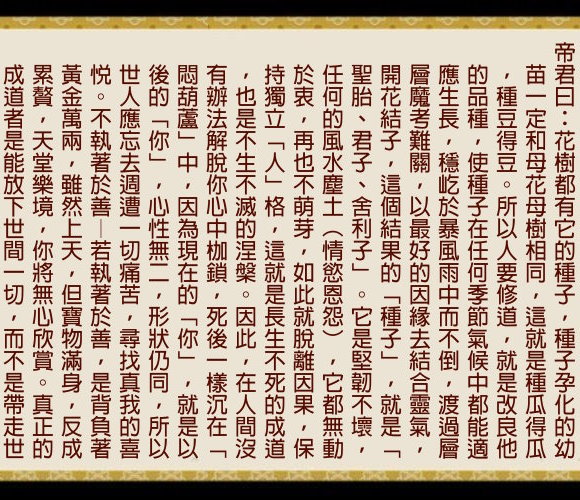 帝君曰：花樹都有它的種子，種子孕化的幼
苗一定和母花母樹相同，這就是種瓜得瓜
，種豆得豆。所以人要修道，就是改良他
的品種，使種子在任何季節氣候中都能適
應生長，穩屹於暴風雨中而不倒，渡過層
層魔考難關，以最好的因緣去結合靈氣，
開花結子，這個結果的「種子」，就是「
聖胎、君子、舍利子」。它是堅韌不壞，
任何的風水塵土（情慾恩怨），它都無動
於衷，再也不萌芽，如此就脫離因果，保
持獨立「人」格，這就是長生不死的成道
，也是不生不滅的涅槃。因此，在人間沒
有辦法解脫你心中枷鎖，死後一樣沉在「
悶葫蘆」中，因為現在的「你」，就是以
後的「你」，心性無二，形狀仍同，所以
世人應忘去週遭一切痛苦，尋找真我的喜
悅。不執著於善｜若執著於善，是背負著
黃金萬兩，雖然上天，但寶物滿身，反成
累贅，天堂樂境，你將無心欣賞。真正的
成道者是能放下世間一切，而不是帶走世